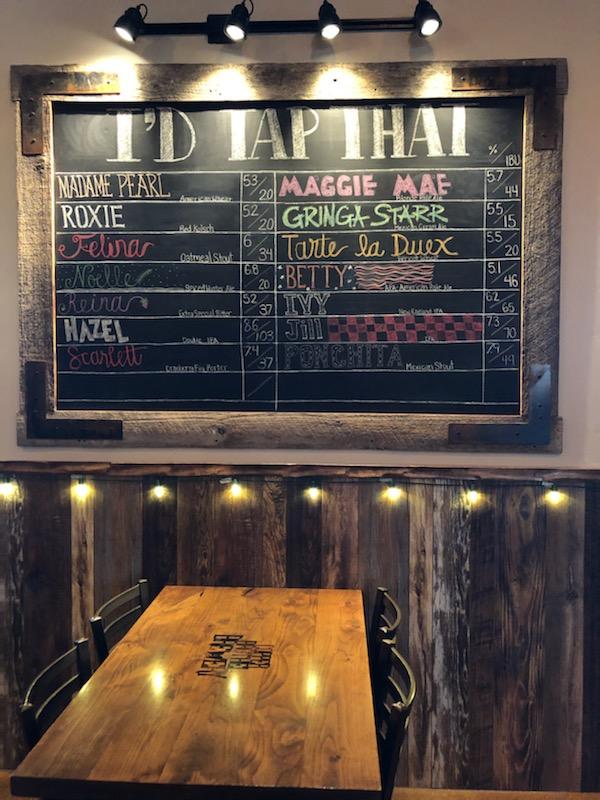 I'D TAP THAT
% / IBU
MADAME PEARL American Wheat 5.3 / 20
ROXIE Red Kolsch 5.2 / 20
Felina Oatmeal Stout 6 / 34
Noelle Spiced Winter Ale 6.8 / 20
Reina Extra Special Bitter 5.2 / 37
HAZEL Double IPA 8.6 / 103
Scarlett Cranberry Fig Porter 7.4 / 37
MAGGIE MAE Blonde Pale Ale 5.7 / 44
GRINGA STARR Mexican Cream Ale 5.5 / 15
Tarte la Duex Apricot Wheat 5.5 / 20
BETTY AKA-American Pale Ale 5.1 / 46
IVY New England IPA 6.2 / 65
Jill IPA 7.3 / 70
PONCHITA Mexican Stout 7.9 / 49